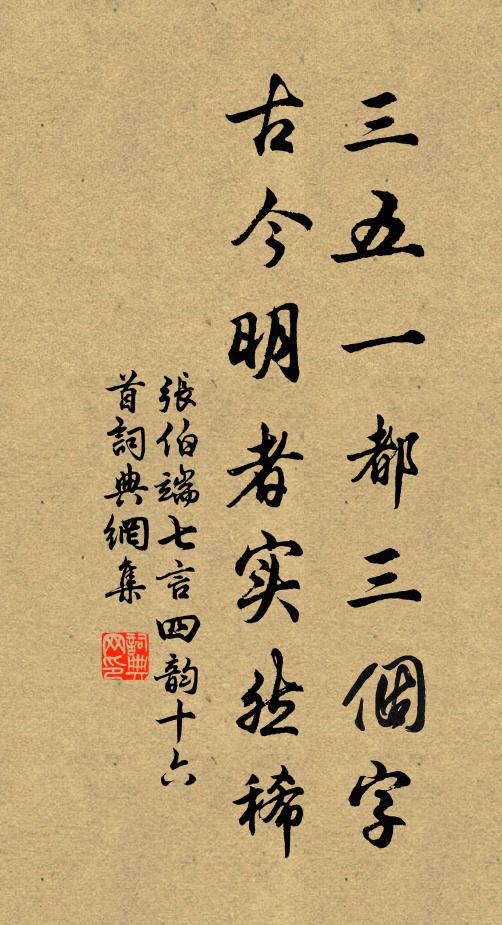 三五一都三個字
古今明者实然稀
張伯端七言四韵十六
首詞典網集
詞典网印